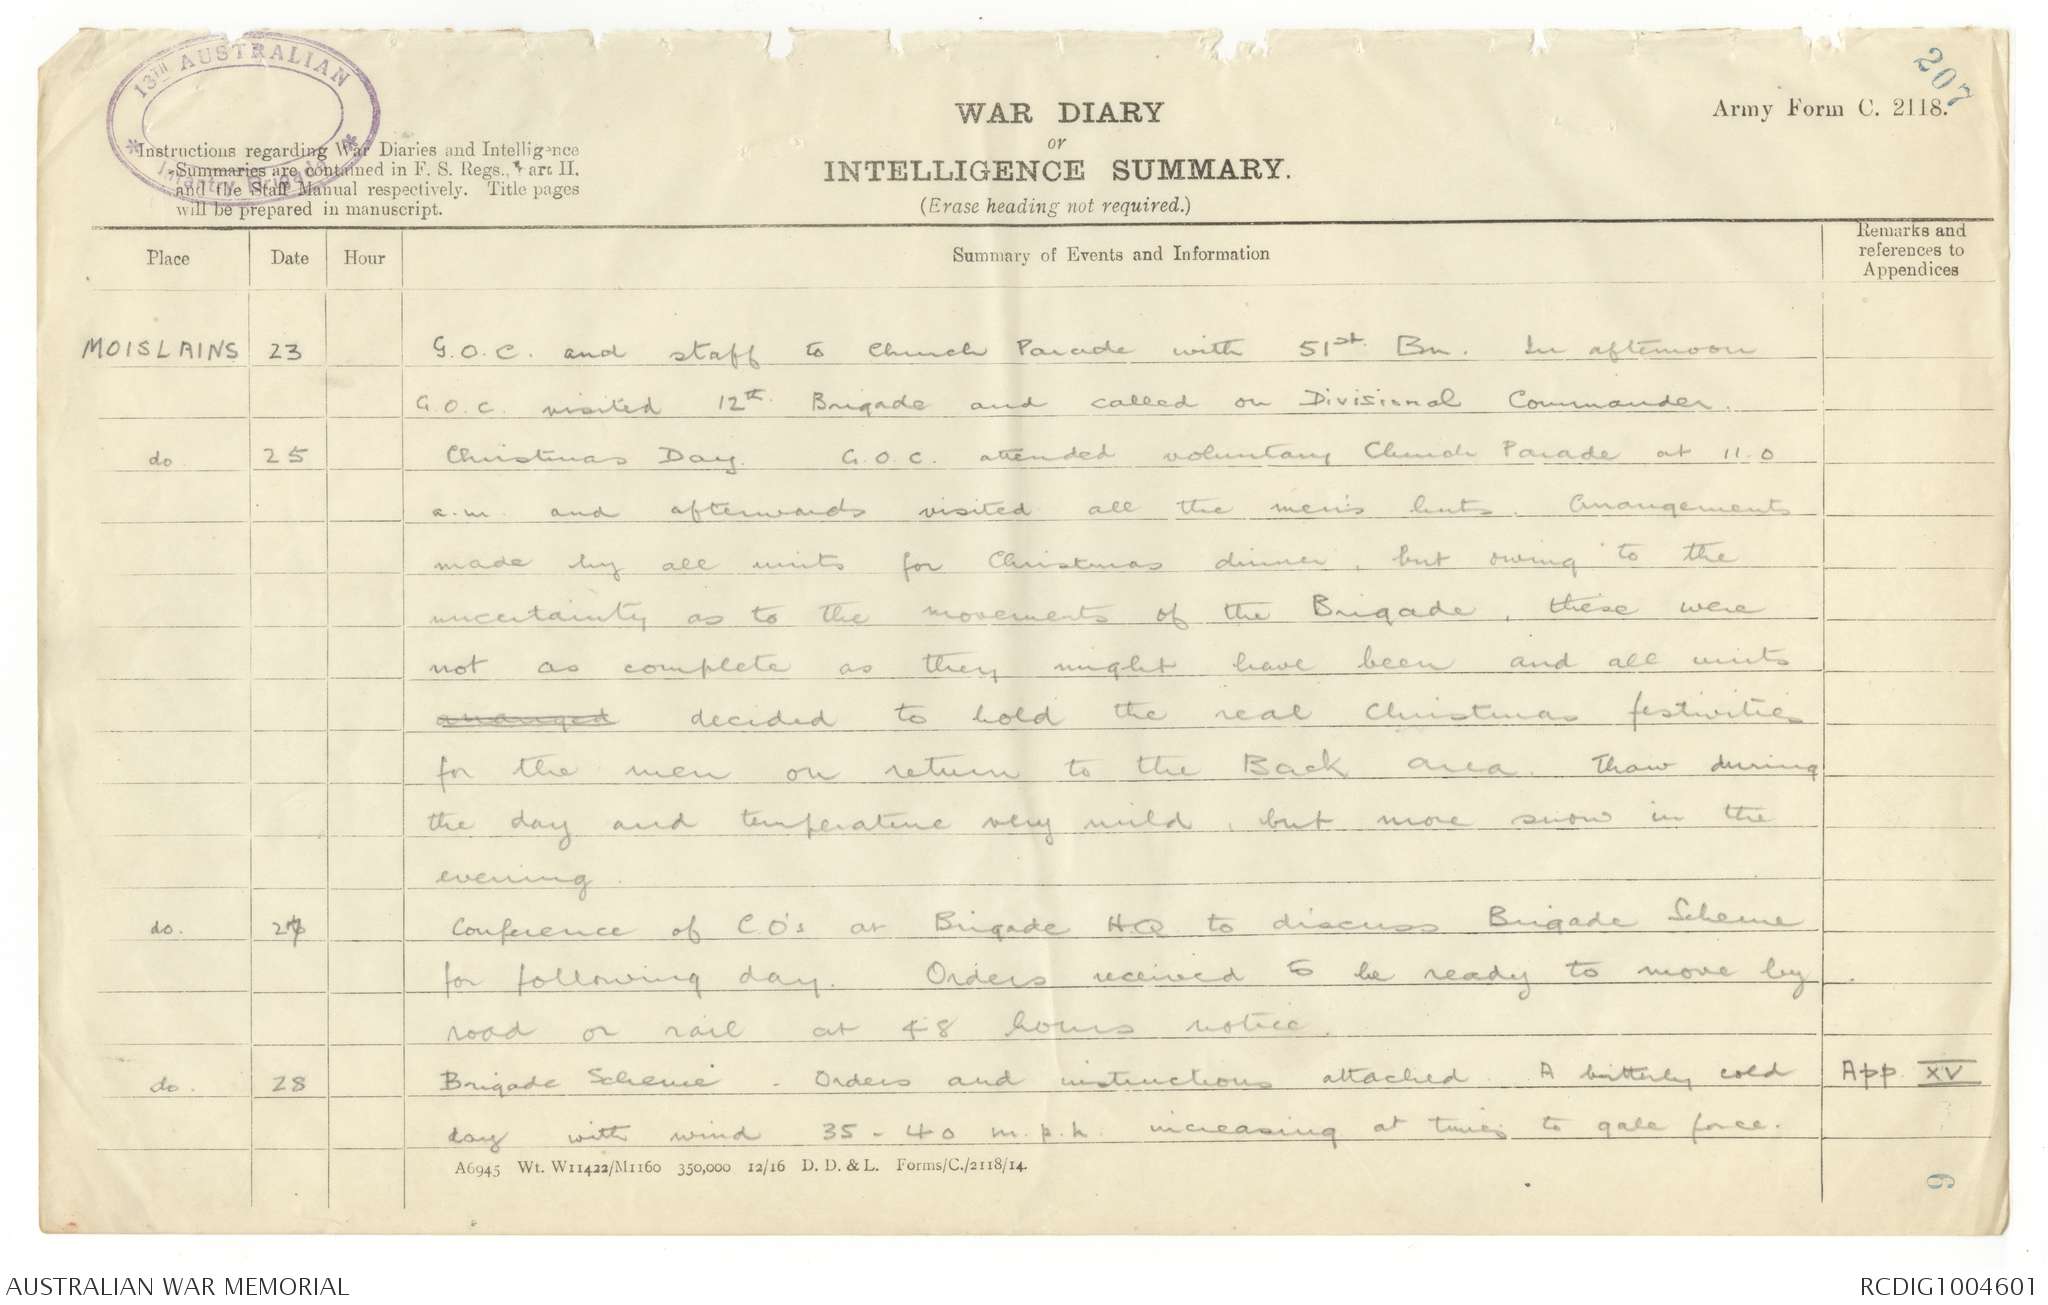 13TH AUSTRALIAN
Infantry Brigade
207
Army Form C. 2118.
WAR DIARY
or
INTELLIGENCE SUMMARY.
(Erase heading not required.)
Instructions regarding War Diaries and Intelligence
Summaries are contained in F. S. Regs., Part II.
and the Staff Manual respectively. Title pages
will be prepared in manuscript.
Place Date Hour Summary of Events and Information Remarks and references to Appendices
MOISLAINS 23 G.O.C. and staff to Church Parade with 51st. Bn. In afternoon
G.O.C. visited 12th. Brigade and called on Divisional Commander.
do. 25 Christmas Day. G.O.C. attended voluntary Church Parade at 11.0
a.m. and afterwards visited all the men's huts. Arrangements
made by all units for Christmas dinner, but owing to the
uncertainty as to the movements of the Brigade, these were
not as complete as they might have been and all units
arranged decided to hold the real Christmas festivities
for the men on return to the Back area. Thaw during
the day and temperature very mild, but more snow in the
evening.
do. 27 Conference of C.O's at Brigade HQ to discuss Brigade Scheme
for following day. Orders received to be ready to move by
road or rail at 48 hours notice.
do. 28 Brigade Scheme - Orders and instructions attached. A bitterly cold App. XV
day with wind 35-40 m.p.h. increasing at times to gale force.
A6945 Wt. W11422/M1160 350,000 12/16 D. D. & L. Forms/C./2118/14.
6
AUSTRALIAN WAR MEMORIAL
RCDIG1004601